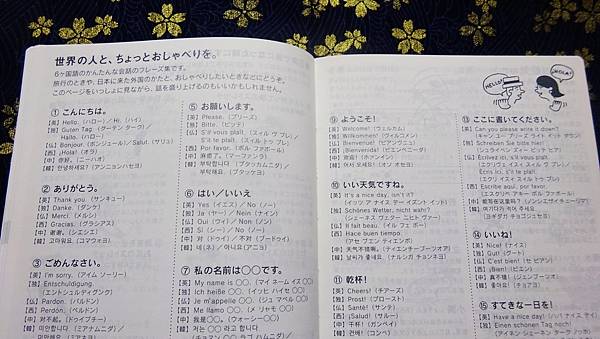 世界の人と、ちょっとおしゃべりを。
6ヶ国語のかんたんな会話のフレーズ集です。
旅行のときや、日本に来た外国のかたと、おしゃべりしたいときなどにどうぞ。
このページをいっしょに見ながら、話を盛り上げるのもいいかもしれません。
①こんにちは。
【英】Hello.(ハロー)/Hi.(ハイ)
【独】Guten Tag.(グーテン ターク)/
Hallo.(ハロー)
【仏】Bonjour.(ボンジュール)/Salut.(サリュ)
【西】¡Hola!(オラ)
【中】你好。(ニーハオ)
【韓】안녕하세요?(アンニョンハセヨ)
②ありがとう。
【英】Thank you.(サンキュー)
【独】Danke.(ダンケ)
【仏】Merci.(メルシ)
【西】Gracias.(グラシアス)
【中】谢谢。(シエシエ)
【韓】고마워요.(コマウォヨ)
③ごめんなさい。
【英】I'm sorry.(アイム ソーリー)
【独】Entschuldigung.
(エントシュルディグング)
【仏】Pardon.(パルドン)
【西】Perdón.(ペルドン)
【中】对不起。(ドゥイブチー)
【韓】미안합니다(ミアナムニダ)/
⑤お願いします。
【英】Please.(プリーズ)
【独】Bitte.(ビッテ)
【仏】S'il vous plaît.(スィル ヴ プレ)/
S'il te plaît.(スィル トゥ プレ)
【西】Por favor.(ポル ファボール)
【中】麻烦了。(マーファンラ)
【韓】부탁합니다(プタッカムニダ)/
부탁해요.(プタッケヨ)
⑥はい/いいえ
【英】Yes(イエス)/No(ノー)
【独】Ja(ヤー)/Nein(ナイン)
【仏】Oui(ウィ)/Non(ノン)
【西】Sí(シー)/No(ノー)
【中】对(ドゥイ)/不对(ブードゥイ)
【韓】네(ネ)/아니요(アニヨ)
⑦私の名前は〇〇です。
【英】My name is 〇〇.(マイネーム イズ〇〇)
【独】Ich heiße 〇〇.(イッヒ ハイセ 〇〇)
【仏】Je m'appelle 〇〇.(ジュ マペル 〇〇)
【西】Me llamo 〇〇.(メ リャモ 〇〇)
【中】我是〇〇。(ウォーシー〇〇)
【韓】저는 〇〇 라고 합니다
(チョヌン 〇〇 ラゴ ハムニダ)/
HELLO!
¡HOLA!
⑨ようこそ!
【英】Welcome!(ウェルカム)
【独】Willkommen!(ヴィルコメン)
【仏】Bienvenue!(ビアンヴニュ)
【西】¡Bienvenida!(ビエンベニーダ)
【中】欢迎!(ホァンイン)
【韓】어서 오세요!(オソ オセヨ)
⑩いい天気ですね。
【英】It's a nice day, isn't it?
(イッツ ア ナイス デー イズント イット)
【独】Schönes Wetter, nicht wahr?
(シェーネス ヴェター ニヒトヴァー)
【仏】Il fait beau.(イル フェ ボー)
【西】Hace buen tiempo.
(アセ ブエン ティエンポ)
【中】天气不错嘛。(ティエンチーブーツオマ)
【韓】날씨가 좋네요.(ナルシガ チョンネヨ)
⑪乾杯!
【英】Cheers!(チアーズ)
【独】Prost!(プロースト)
【仏】Santé!(サンテ)
【西】¡Salud!(サルー)
【中】干杯!(ガンペイ)
【韓】건배!(コンベ)
⑬ここに書いてください。
【英】Can you please write it down?
(キャン ユー プリーズ ライト イット ダウン)
【独】Schreiben Sie bitte hier!
(シュライベン ズィー ビッテ ヒア)
【仏】Écrivez ici, s'il vous plaît.
(エクリヴェ イスィ スィル ヴ プレ)/
Écris ici, s'il te plaît.
(エクリ イスィ スィル トゥ プレ)
【西】Escribe aquí, por favor.
(エスクリベ アキー ポル ファボール)
【韓】여기다가 적어 주세요.
(ヨギダガ チョゴジュセヨ)
⑭いいね!
【英】Nice!(ナイス)
【独】Gut!(グート)
【仏】C'est bien!(セ ビアン)
【西】¡Bien!(ビエン)
【中】真不错!(ジェンブーツオ)
【韓】좋아요!(チョアヨ)
⑮すてきな一日を!
【英】Have a nice day!(ハヴ ア ナイス デー)
【独】Einen schönen Tag noch!
(アイネン シェーネン ターク ノッホ)